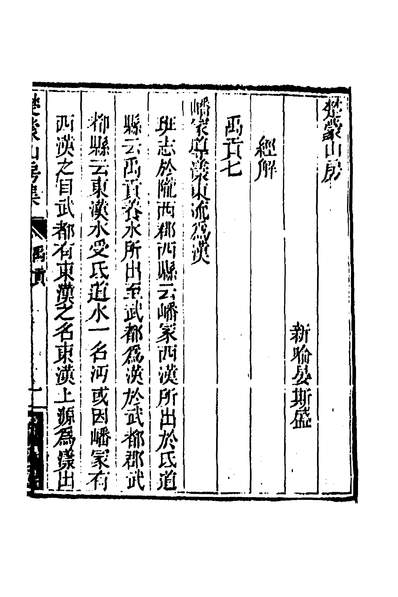 楚蒙山房
新喻晏斯盛
經解
禹貢七
嶓冢導漾東流爲漢
班志於隴西郡西縣云嶓冢西漢所出於氐道
縣云禹貢養水所出至武都爲漢於武都郡武
都縣云東漢水受氐道水一名沔或因嶓冢有
西漢之目武都有東漢之名東漢上源爲漾出
楚蒙山房集
禹貢